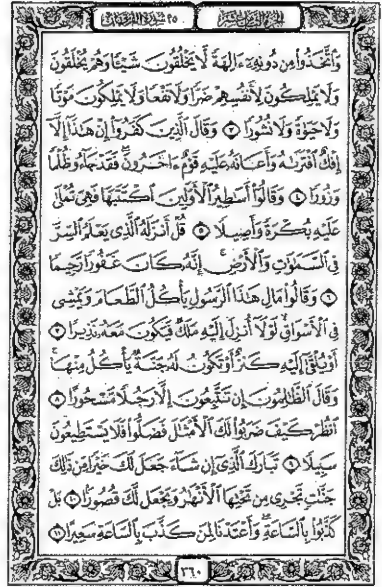 الجزء الثامن عشر ٢٥ سورة الفرقان
وَاتَّخَذُوا مِن دُونِهِ ءَالِهَةً لَّا يَخْلُقُونَ شَيْئًا وَهُمْ يُخْلَقُونَ
وَلَا يَمْلِكُونَ لِأَنفُسِهِمْ ضَرًّا وَلَا نَفْعًا وَلَا يَمْلِكُونَ مَوْتًا
وَلَا حَيَوٰةً وَلَا نُشُورًا ٣ وَقَالَ الَّذِينَ كَفَرُوا إِنْ هَٰذَا إِلَّا
إِفْكٌ افْتَرَىٰهُ وَأَعَانَهُ عَلَيْهِ قَوْمٌ ءَاخَرُونَ فَقَدْ جَاءُو ظُلْمًا
وَزُورًا ٤ وَقَالُوا أَسَٰطِيرُ الْأَوَّلِينَ اكْتَتَبَهَا فَهِيَ تُمْلَىٰ
عَلَيْهِ بُكْرَةً وَأَصِيلًا ٥ قُلْ أَنزَلَهُ الَّذِي يَعْلَمُ السِّرَّ
فِي السَّمَٰوَٰتِ وَالْأَرْضِ إِنَّهُ كَانَ غَفُورًا رَّحِيمًا
٦ وَقَالُوا مَالِ هَٰذَا الرَّسُولِ يَأْكُلُ الطَّعَامَ وَيَمْشِي
فِي الْأَسْوَاقِ لَوْلَا أُنزِلَ إِلَيْهِ مَلَكٌ فَيَكُونَ مَعَهُ نَذِيرًا ٧
أَوْ يُلْقَىٰ إِلَيْهِ كَنزٌ أَوْ تَكُونُ لَهُ جَنَّةٌ يَأْكُلُ مِنْهَا
وَقَالَ الظَّٰلِمُونَ إِن تَتَّبِعُونَ إِلَّا رَجُلًا مَّسْحُورًا ٨
انظُرْ كَيْفَ ضَرَبُوا لَكَ الْأَمْثَٰلَ فَضَلُّوا فَلَا يَسْتَطِيعُونَ
سَبِيلًا ٩ تَبَارَكَ الَّذِي إِن شَاءَ جَعَلَ لَكَ خَيْرًا مِّن ذَٰلِكَ
جَنَّٰتٍ تَجْرِي مِن تَحْتِهَا الْأَنْهَٰرُ وَيَجْعَل لَّكَ قُصُورًا ١٠ بَلْ
كَذَّبُوا بِالسَّاعَةِ وَأَعْتَدْنَا لِمَن كَذَّبَ بِالسَّاعَةِ سَعِيرًا ١١
٣٦٠